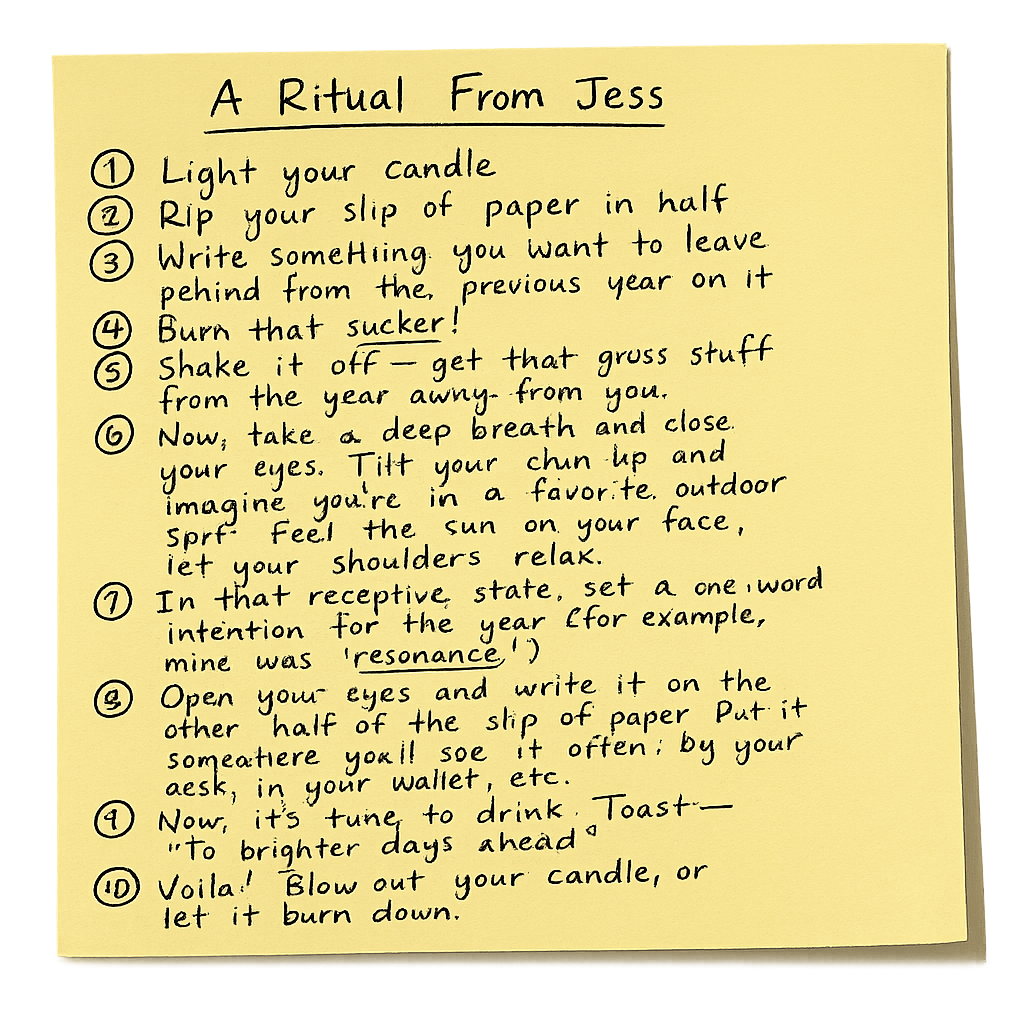 A Ritual From Jess
① Light your candle
② Rip your slip of paper in half
③ Write something you want to leave
pehind from the, previous year on it
④ Burn that sucker!
⑤ Shake it off — get that gross stuff
from the year awny- from you.
⑥ Now, take a deep breath and close
your eyes. Tilt your chin up and
imagine you're in a favor.te. outdoor
sprf- Feel the sun on your face,
let your shoulders relax.
⑦ In that receptive state, set a one word
intention for the year (for example,
mine was 'resonance')
⑧ Open your eyes and write it on the
other half of the slip of paper Put it
someatiere you'll soe it often; by your
aesk, in your wallet, etc.
⑨ Now, it's tune to drink. Toast —
"To brighter days ahead"
⑩ Voila! Blow out your candle, or
let it burn down.